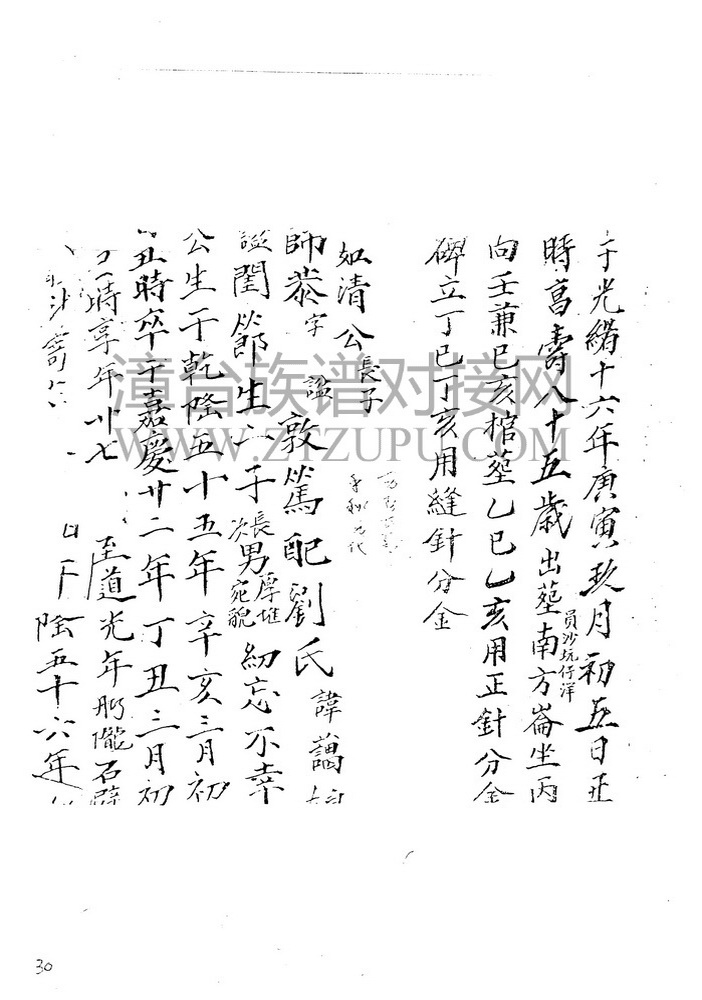 于光緒十六年庚寅玖月初五日正
時高壽八十五歲出塟南方崙坐丙
員沙坑仔洋
向壬兼巳亥棺塟乙巳乙亥用正針分金
碑立丁巳丁亥用縫針分金
如清公長子
師恭字 諡敦篤配劉氏諱藹
諡閨節生六子長男厚堆
次 宛貌 幼忘不幸
公生于乾隆五十五年辛亥三月初
丑時卒于嘉慶廿二年丁丑三月初
時享年卅七 至道光年 隴石壁
隆五十六年
漳台族谱对接网
WWW.ZTZUPU.COM
30